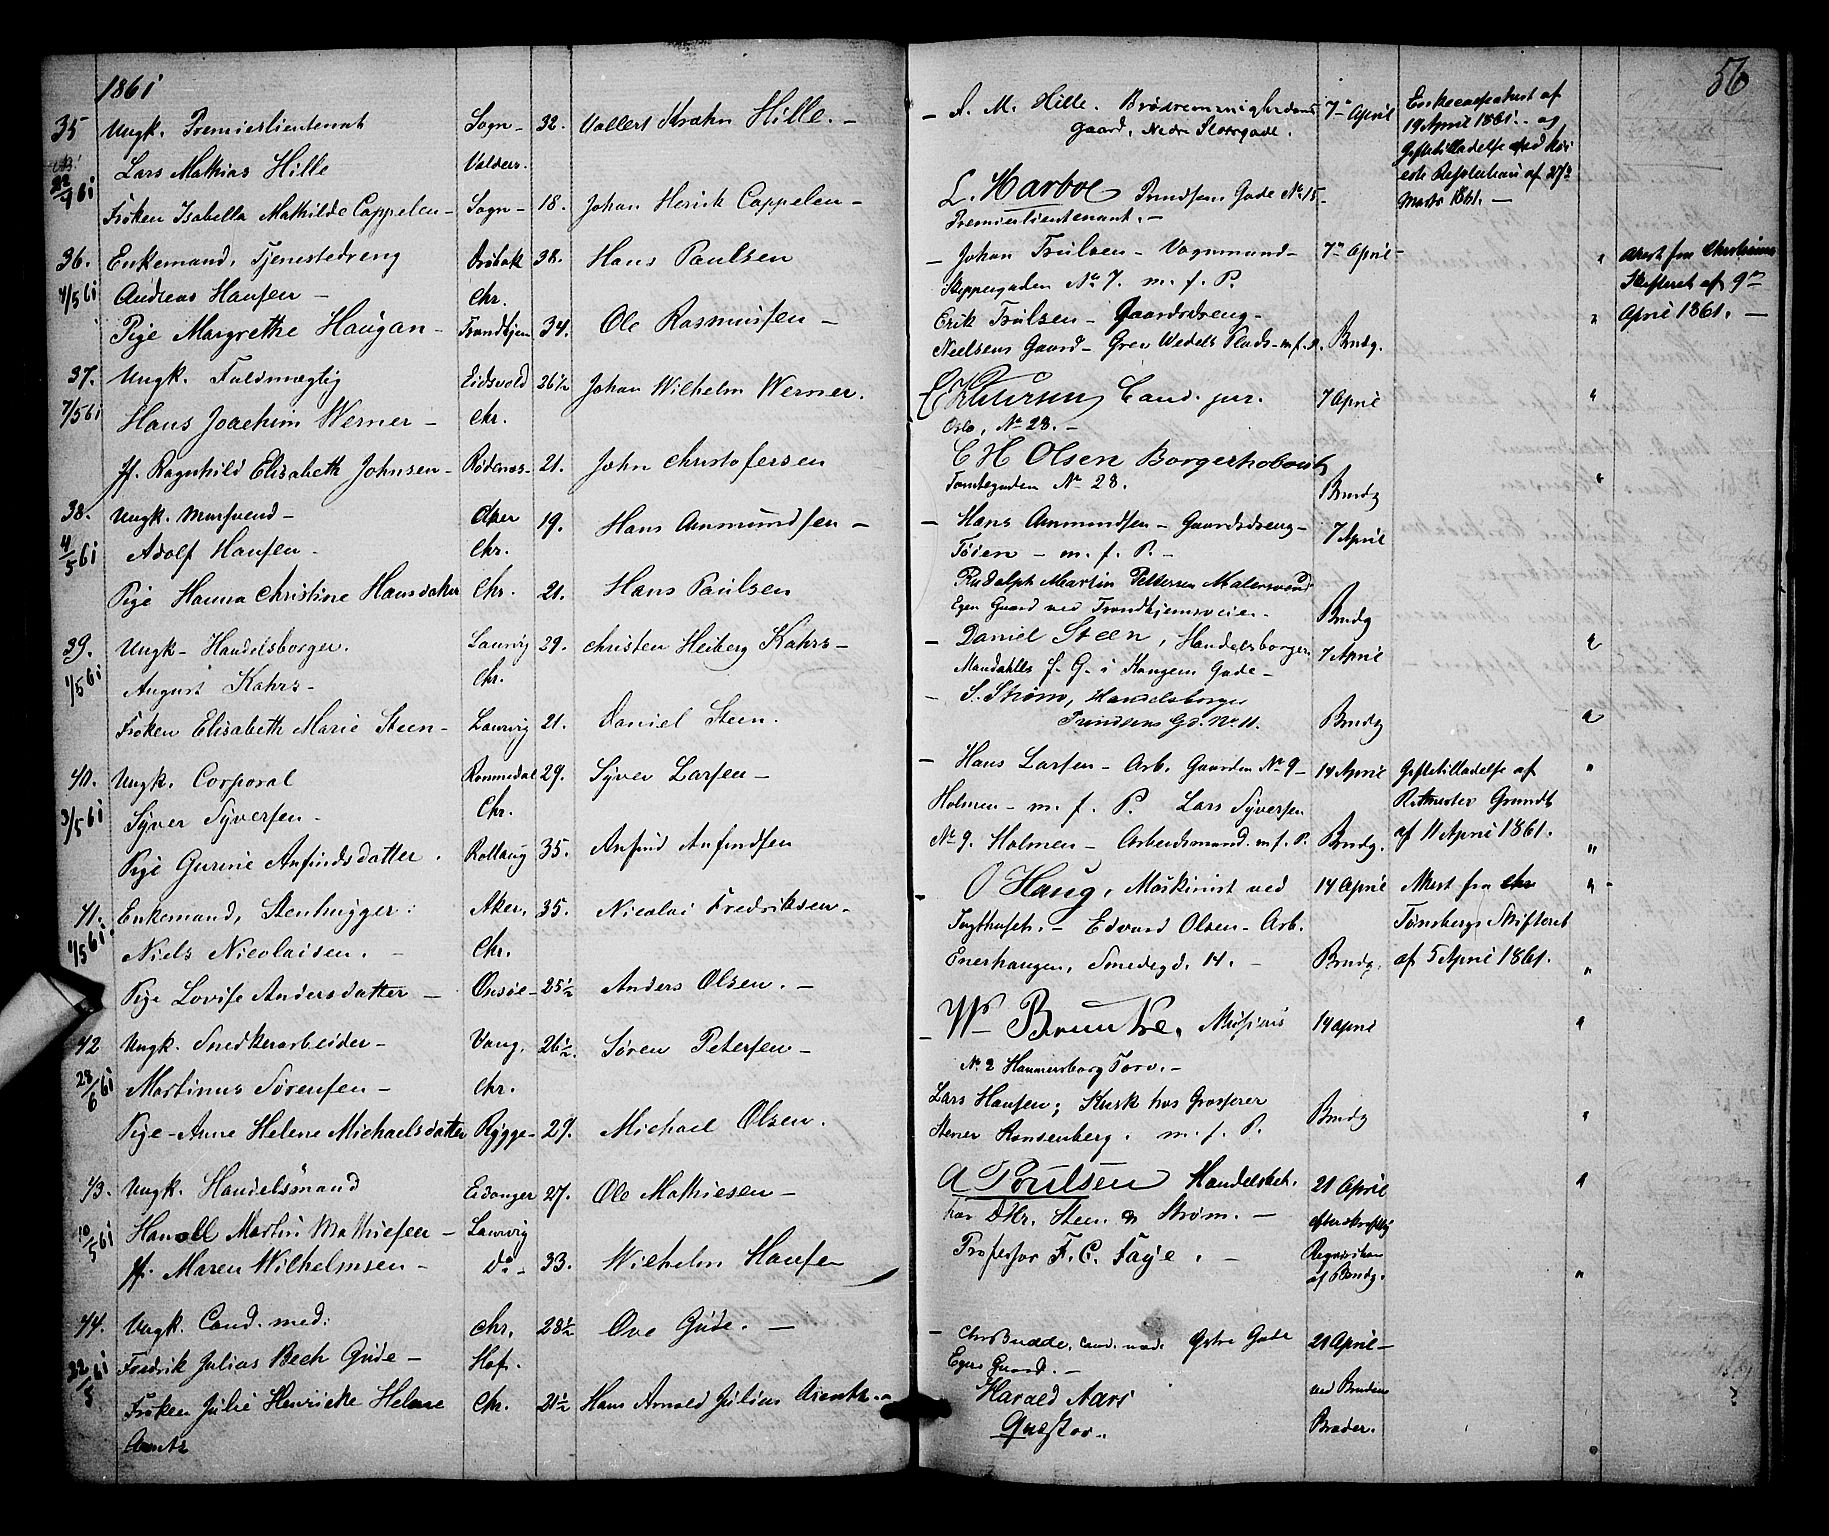 1861
35 Ungk. Premierlieutenant Sogn- 32. Vollert Krohn Hille. -
Lars Mathias Hille Valders.
Frøken Isabella Mathilde Cappelen - Sogn- 18. Johan Henrik Cappelen -
36. Enkemand, Tjenestedreng Drøbak 38. Hans Paulsen
4/5 61 Andreas Hansen - Chr.
Pige Margrethe Haugan - Trondhjem 34. Ole Rasmussen -
37. Ungk. Fuldmægtig Eidsvold 26 1/2 Johan Wilhelm Werner.
7/5 61 Hans Joachim Werner - Chr.
Jf. Ragnhild Elisabeth Johnsen - Rødenæs- 21. John Christofersen
38. Ungk. Mursvend - Aker 19. Hans Amundsen -
4/5 61 Adolf Hansen - Chr.
Pige Hanna Christine Hansdatter Chr. 21. Hans Paulsen
39. Ungk- Handelsborger. Laurvig 29. Christen Heiberg Kahrs -
1/5 61 August Kahrs - Chr.
Frøken Elisabeth Marie Steen - Laurvig 21. Daniel Steen.
40. Ungk. Corporal Rommedal 29. Syver Larsen -
3/5 61 Syver Syversen - Chr.
Pige Gurine Anfindsdatter. Rollaug 35. Anfind Anfindsen
41. Enkemand, Stenhugger: Aker, 35. Nicolai Fredriksen -
1/5 61. Niels Nicolaisen. - Chr.
Pige Lovise Andersdatter - Onsøe- 25 1/2 Anders Olsen. -
42 Ungk. Snedkerarbeider - Vang, 26 1/2 Søren Petersen -
28/6 61 Martinus Sørensen - Chr.
Pige - Anne Helene Michaelsdatter Rygge- 27. Michael Olsen.
43. Ungk. Handelsmand Eidanger 27. Ole Mathiesen -
10/5 61 Martin Mathiesen - Laurvig
Jf. Maren Wilhelmsen - do - 33. Wilhelm Hansen
44. Ungk. Cand. med: Chr. 28 1/2 Ove Gude. -
Fredrik Julius Bech Gude - Hof.
Frøken Julie Henricke Helene Chr. 21 1/2 Hans Arnold Julius Arentz. -
Arentz
56
- A. M. Hille. Gaard, Nedre Slotsgade. 7de April
Enkecasseattest af
19 April 1861. og
Giftetilladelse ved
Resolution af 27de
Marts 1861. -
L. Harboe Prindsens Gade No 15-
Premierlieutenant. -
- Johan Trulsen - Vognmand - 7de April - Attest fra Christiania
Skippergaden No 7. m. f. P. Skifteret af 9de
Erik Trulsen - Gaardsdreng - April 1861. -
Nielsens Gaard - Grev Wedels Plads - m. f. P. Brudg.
Petersen Cand. jur. 7 April
Oslo, No 28. -
C H Olsen Borger
Tomtegaden No 28. Brudg
- Hans Amundsen - Gaardsdreng - 7 April
Tøien - m. f. P. -
Rudolph Martin Pettersen Malersvend
Egen Gaard ved Trondhjemsveien - Brudg
- Daniel Steen, Handelsborger 7 April
f. G. i Kongens Gade -
- S. Strøm, Handelsborger
Prindsens Gd. No 11. Brudg
- Hans Larsen - Arb. Gaarden No 9 - 14 April Giftetilladelse af
Holmen - m. f. P. Lars Syversen Ritmester Grundt
No 9. Holmen - Arbeidsmand. m. f. P. Brudg. af 11 April 1861.
- O Haug, Maskinist ved 14 April Attest fra
Edvard Olsen - Arb. Tønsbergs Skifteret
Enerhaugen, Smedegd. 14. - Brudg. af 5 April 1861.
- Musicus 14 April
No 2 Hammersborg Torv. -
Lars Hansen; Kusk hos Grosserer Brudg
Stener m. f. P.
A Poulsen Handelsbet. 21 April
hos DHr. Steen & Strøm. - efter skriftlig
Professor F. C. Faye. - Requisition
af Brudg.
- Chr Budde, cand. med. Østre Gade 21 April -
Egers Gaard. -
Harald Aars ved Brudens
Quæstor. Broder.